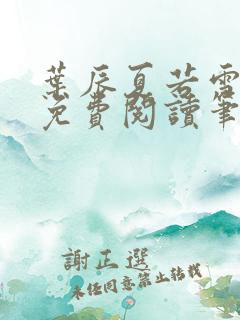 葉辰夏若雪
免費閱讀筆
謝正選
未經同意禁止轉載